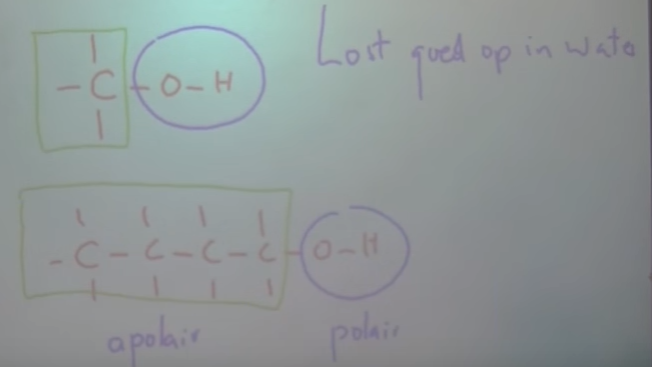 - C - O - H
Lost goed op in wate
- C - C - C - C - O - H
apolair polair